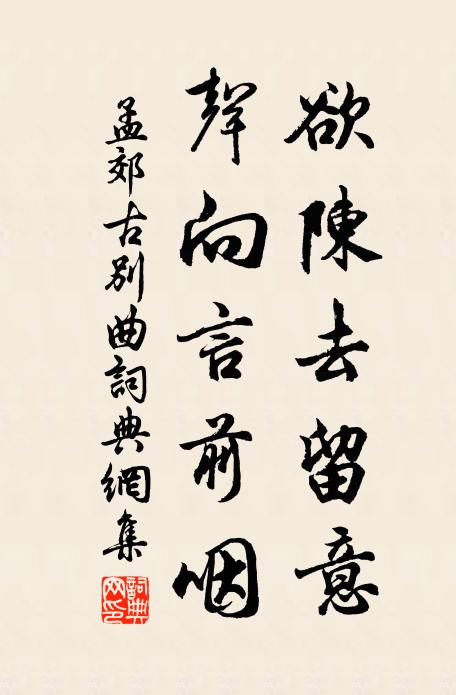 欲陳去留意
聲向言前咽
孟郊古別曲詞典網集
詞典網印